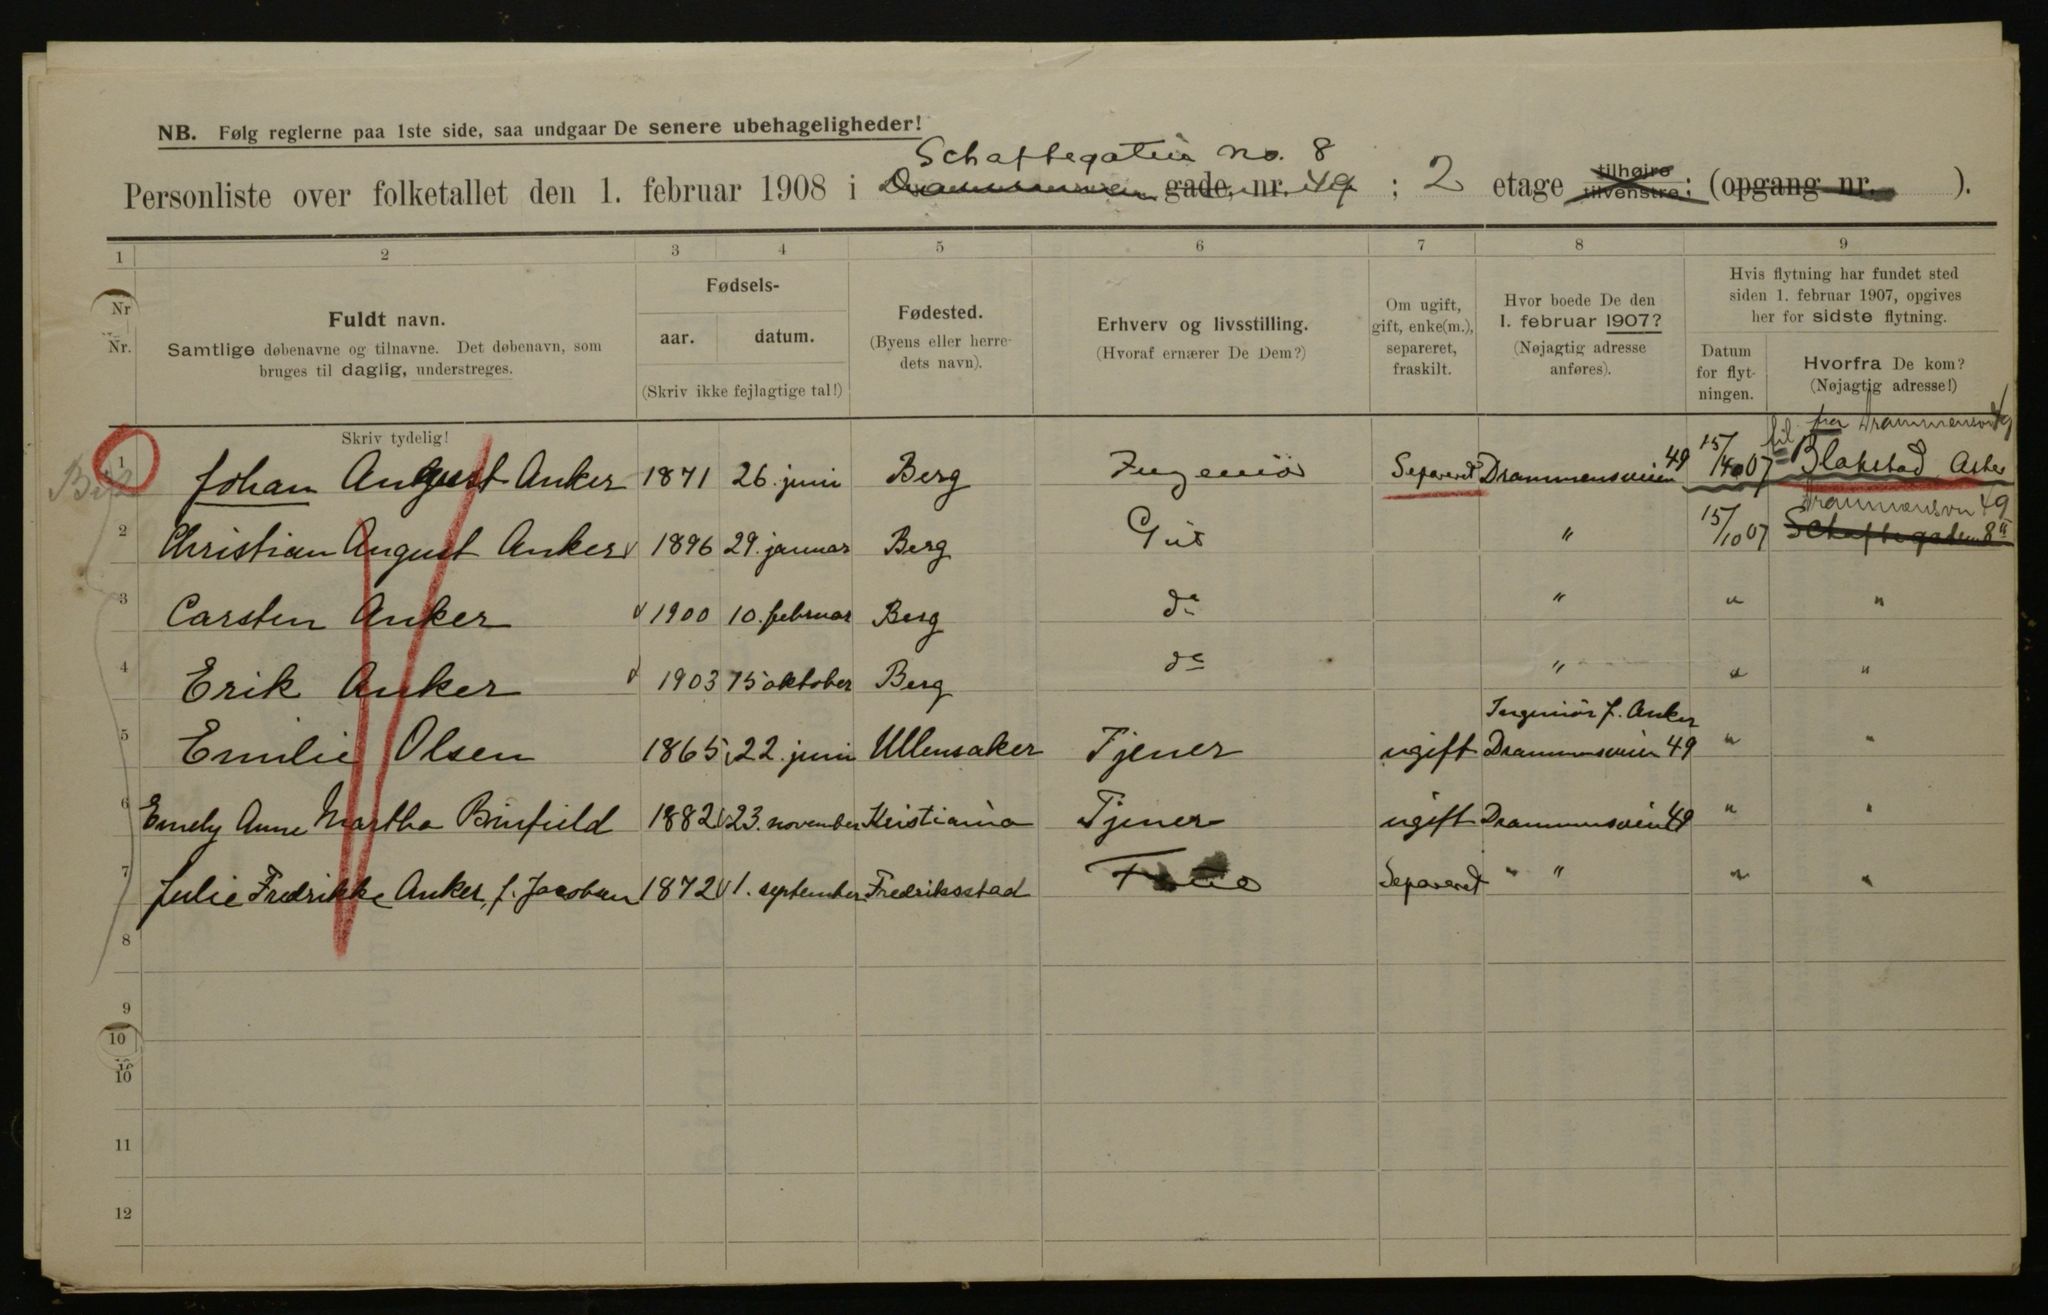 NB. Følg reglerne paa 1ste side, saa undgaar De senere ubehageligheder!
Schaftegaten no. 8
Personliste over folketallet den 1. februar 1908 i Drammensveien gade, nr. 49 ; 2 etage tilhøjre tilvenstre; (opgang nr. ).
1 2 3 4 5 6 7 8 9
Nr Nr.
Fuldt navn.
Samtlige døbenavne og tilnavne. Det døbenavn, som
bruges til daglig, understreges.
Fødsels-
aar. datum.
(Skriv ikke fejlagtige tal!)
Fødested.
(Byens eller herre-
dets navn).
Erhverv og livsstilling.
(Hvoraf ernærer De Dem?)
Om ugift,
gift, enke(m.),
separeret,
fraskilt.
Hvor boede De den
1. februar 1907?
(Nøjagtig adresse
anføres).
Hvis flytning har fundet sted
siden 1. februar 1907, opgives
her for sidste flytning.
Datum
for flyt-
ningen.
Hvorfra De kom?
(Nøjagtig adresse!)
Skriv tydelig!
til fra Drammensv 49
1 Johan August Anker 1871 26. juni Berg Ingeniør Separeret Drammensveien 49 15/10 07 Blakstad Asker
Drammensvn 49
2 Christian August Anker 1896 29. januar Berg Gut " 15/10 07 Schaftegaden 8 II
3 Carsten Anker 1900 10. februar Berg do " " "
4 Erik Anker 1903 15 oktober Berg do " " "
Ingeniør J. Anker
5 Emilie Olsen 1865 22. juni Ullensaker Tjener ugift Drammensveien 49 " "
6 Emely Anne Martha Binfield 1882 23. november Kristiania Tjener ugift Drammensveien 49 " "
7 Julie Fredrikke Anker, f. Jacobsen 1872 1. september Fredriksstad Separeret " " " "
8
9
10
10
11
12